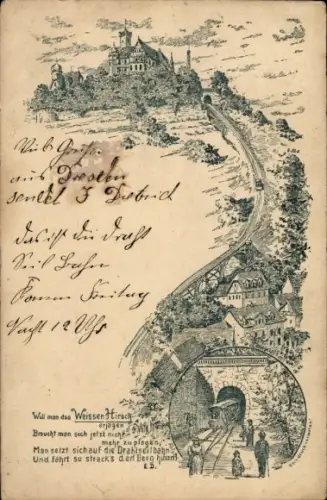 Viele Grüße
aus Dresden
sendet
das ist die Draht
Seil Bahn
Komm Freitag
Nacht 12 Uhr
Will man den Weissen Hirsch
erjagen
Braucht man sich jetzt nicht
mehr zu plagen,
Man setzt sich auf die Drahtseilbahn
Und fährt so stracks den Berg hinan!